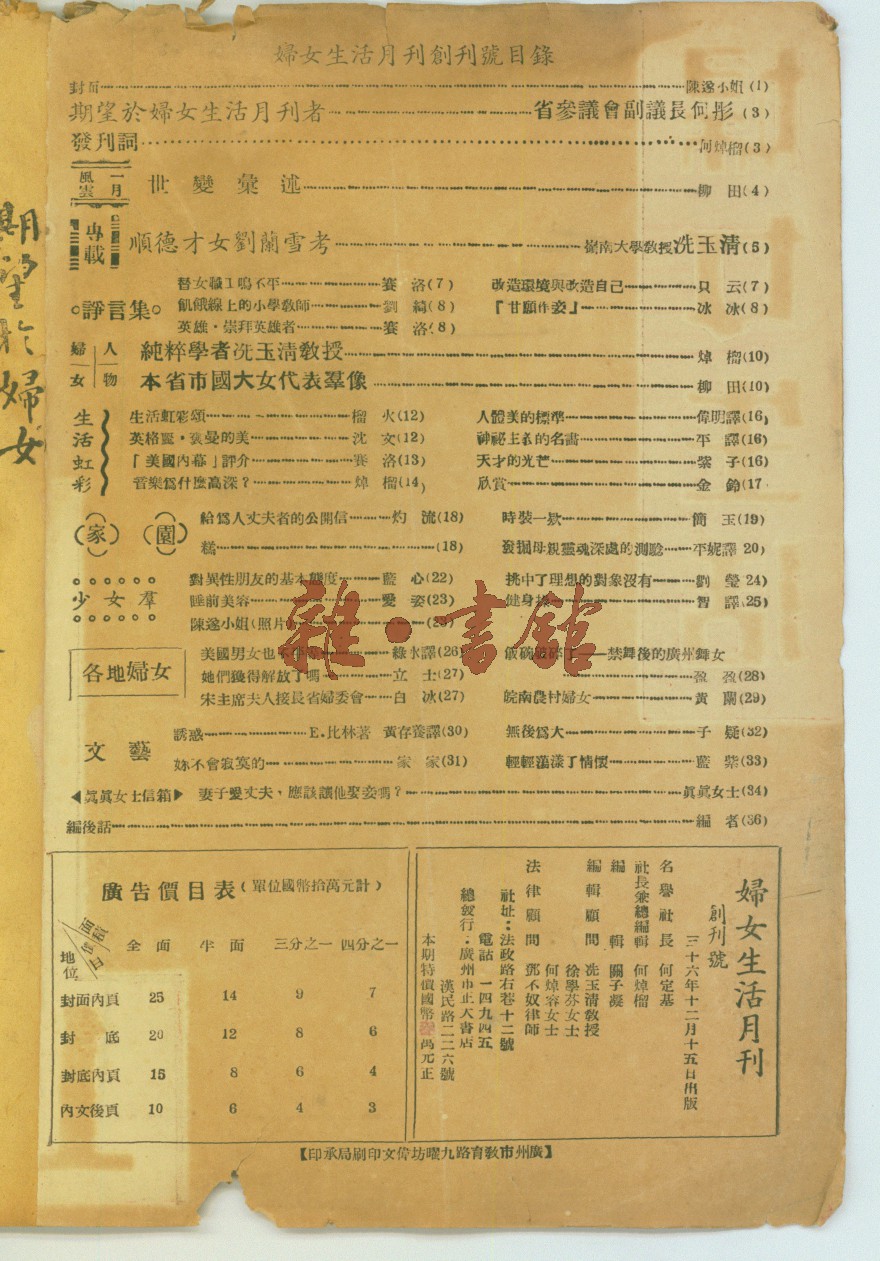 婦女生活月刊創刊號目錄
封面 陳邃小姐(1)
期望於婦女生活月刊者 省參議會副議長何彤(3)
發刊詞 何焯榴(3)
一月風雲 世變彙述 柳田(4)
專載 順德才女劉蘭雪考 嶺南大學教授冼玉清(5)
諍言集
替女職工鳴不平 賽洛(7) 改造環境與改造自己 只云(7)
飢餓線上的小學教師 劉綺(8) 『甘願作妾』 冰冰(8)
英雄·崇拜英雄者 賽洛(8)
婦女人物
純粹學者冼玉清教授 焯榴(10)
本省市國大女代表羣像 柳田(10)
生活虹彩
生活虹彩頌 榴火(12) 人體美的標準 偉明譯(16)
英格麗·褒曼的美 沈女(12) 神祕主義的名畫 平譯(16)
「美國內幕」評介 賽洛(13) 天才的光芒 紫子(16)
音樂爲什麽高深? 焯榴(14) 欣賞 金鈴(17
(家)(園)
給爲人丈夫者的公開信 灼流(18) 時裝一欵 簡玉(19)
糕 (18) 發掘母親靈魂深處的測驗 平妮譯 20)
少女羣
對異性朋友的基本態度 藍心(22) 挑中了理想的對象沒有 劉瑩 24)
睡前美容 愛姿(23) 健身操 智譯(25)
陳邃小姐(照片)
各地婦女
美國男女也不平等 綠冰譯(26) 飯碗破碎了——禁舞後的廣州舞女
她們獲得解放了嗎 立士(27) 盈盈(28)
宋主席夫人接長省婦委會 白冰(27) 皖南農村婦女 黃蘭(29)
文藝
誘惑 E.比林著 黃存養譯(30) 無後爲大 子疑(32)
妳不會寂寞的 家家(31) 輕輕蕩漾了情懷 藍紫(33)
◀眞眞女士信箱▶ 妻子愛丈夫,應該讓他娶妾嗎? 眞眞女士(34)
編後話 編者(36)
廣告價目表(單位國幣拾萬元計)
面積 價目 地位 全面 半面 三分之一 四分之一
封面內頁 25 14 9 7
封底 20 12 8 6
封底內頁 15 8 6 4
內文後頁 10 6 4 3
婦女生活月刊
創刊號
三十六年十二月十五日出版
名譽社長 何定基
社長兼總編輯 何焯榴
編輯 關子凝
編輯顧問 冼玉清教授
徐學芬女士
何焯容女士
法律顧問 鄧不奴律師
社址:法政路右巷十二號
電話 一四九四五
總發行:廣州市正大書店
漢民路二二六號
本期特價國幣 萬元正
【印承局刷印文偉坊曜九路育教市州廣】
期望於婦女
雜·書館